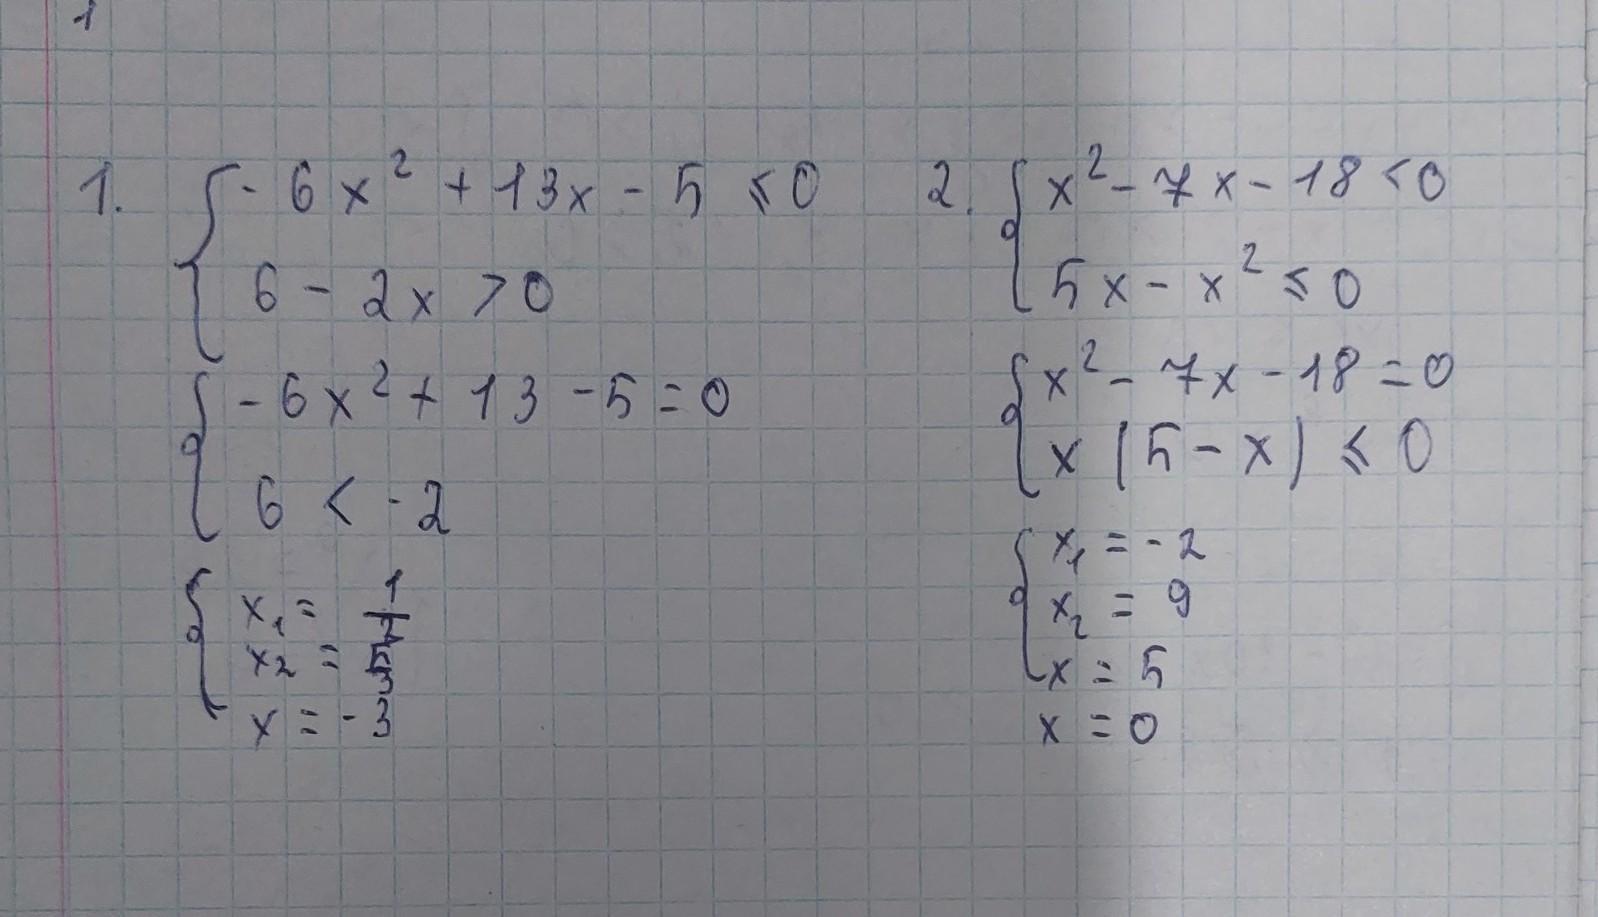 1
1. { - 6x² + 13x - 5 ≤ 0
6 - 2x > 0
{ - 6x² + 13 - 5 = 0
6 < - 2
{ x₁ =
x₂ =
x = - 3
2. { x² - 7x - 18 < 0
5x - x² ≤ 0
{ x² - 7x - 18 = 0
x (5 - x) ≤ 0
{ x₁ = - 2
x₂ = 9
x = 5
x = 0